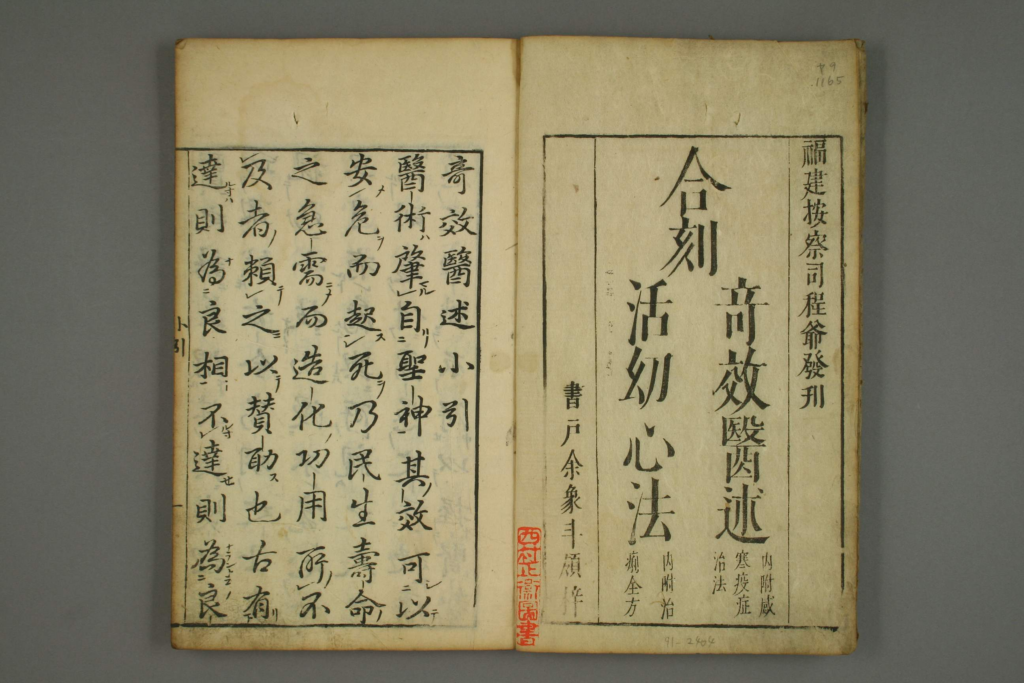 福建按察司程爺發刊
合刻
奇效醫述
內附感
寒疫症
治法
活幼心法
內附治
痢全方
書戶余象斗領梓
奇效醫述小引
醫術肇自聖神其效可以
安危而起死乃民生壽命
之急需而造化功用所不
及者賴之以賛助也古有
達則為良相不達則為良
小引
91-2804